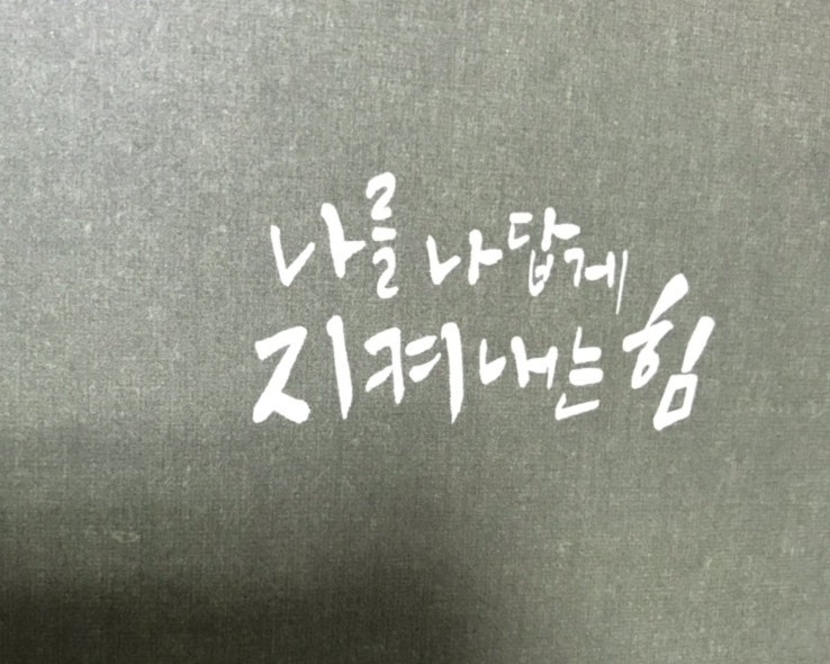 나를 나답게
지켜내는 힘